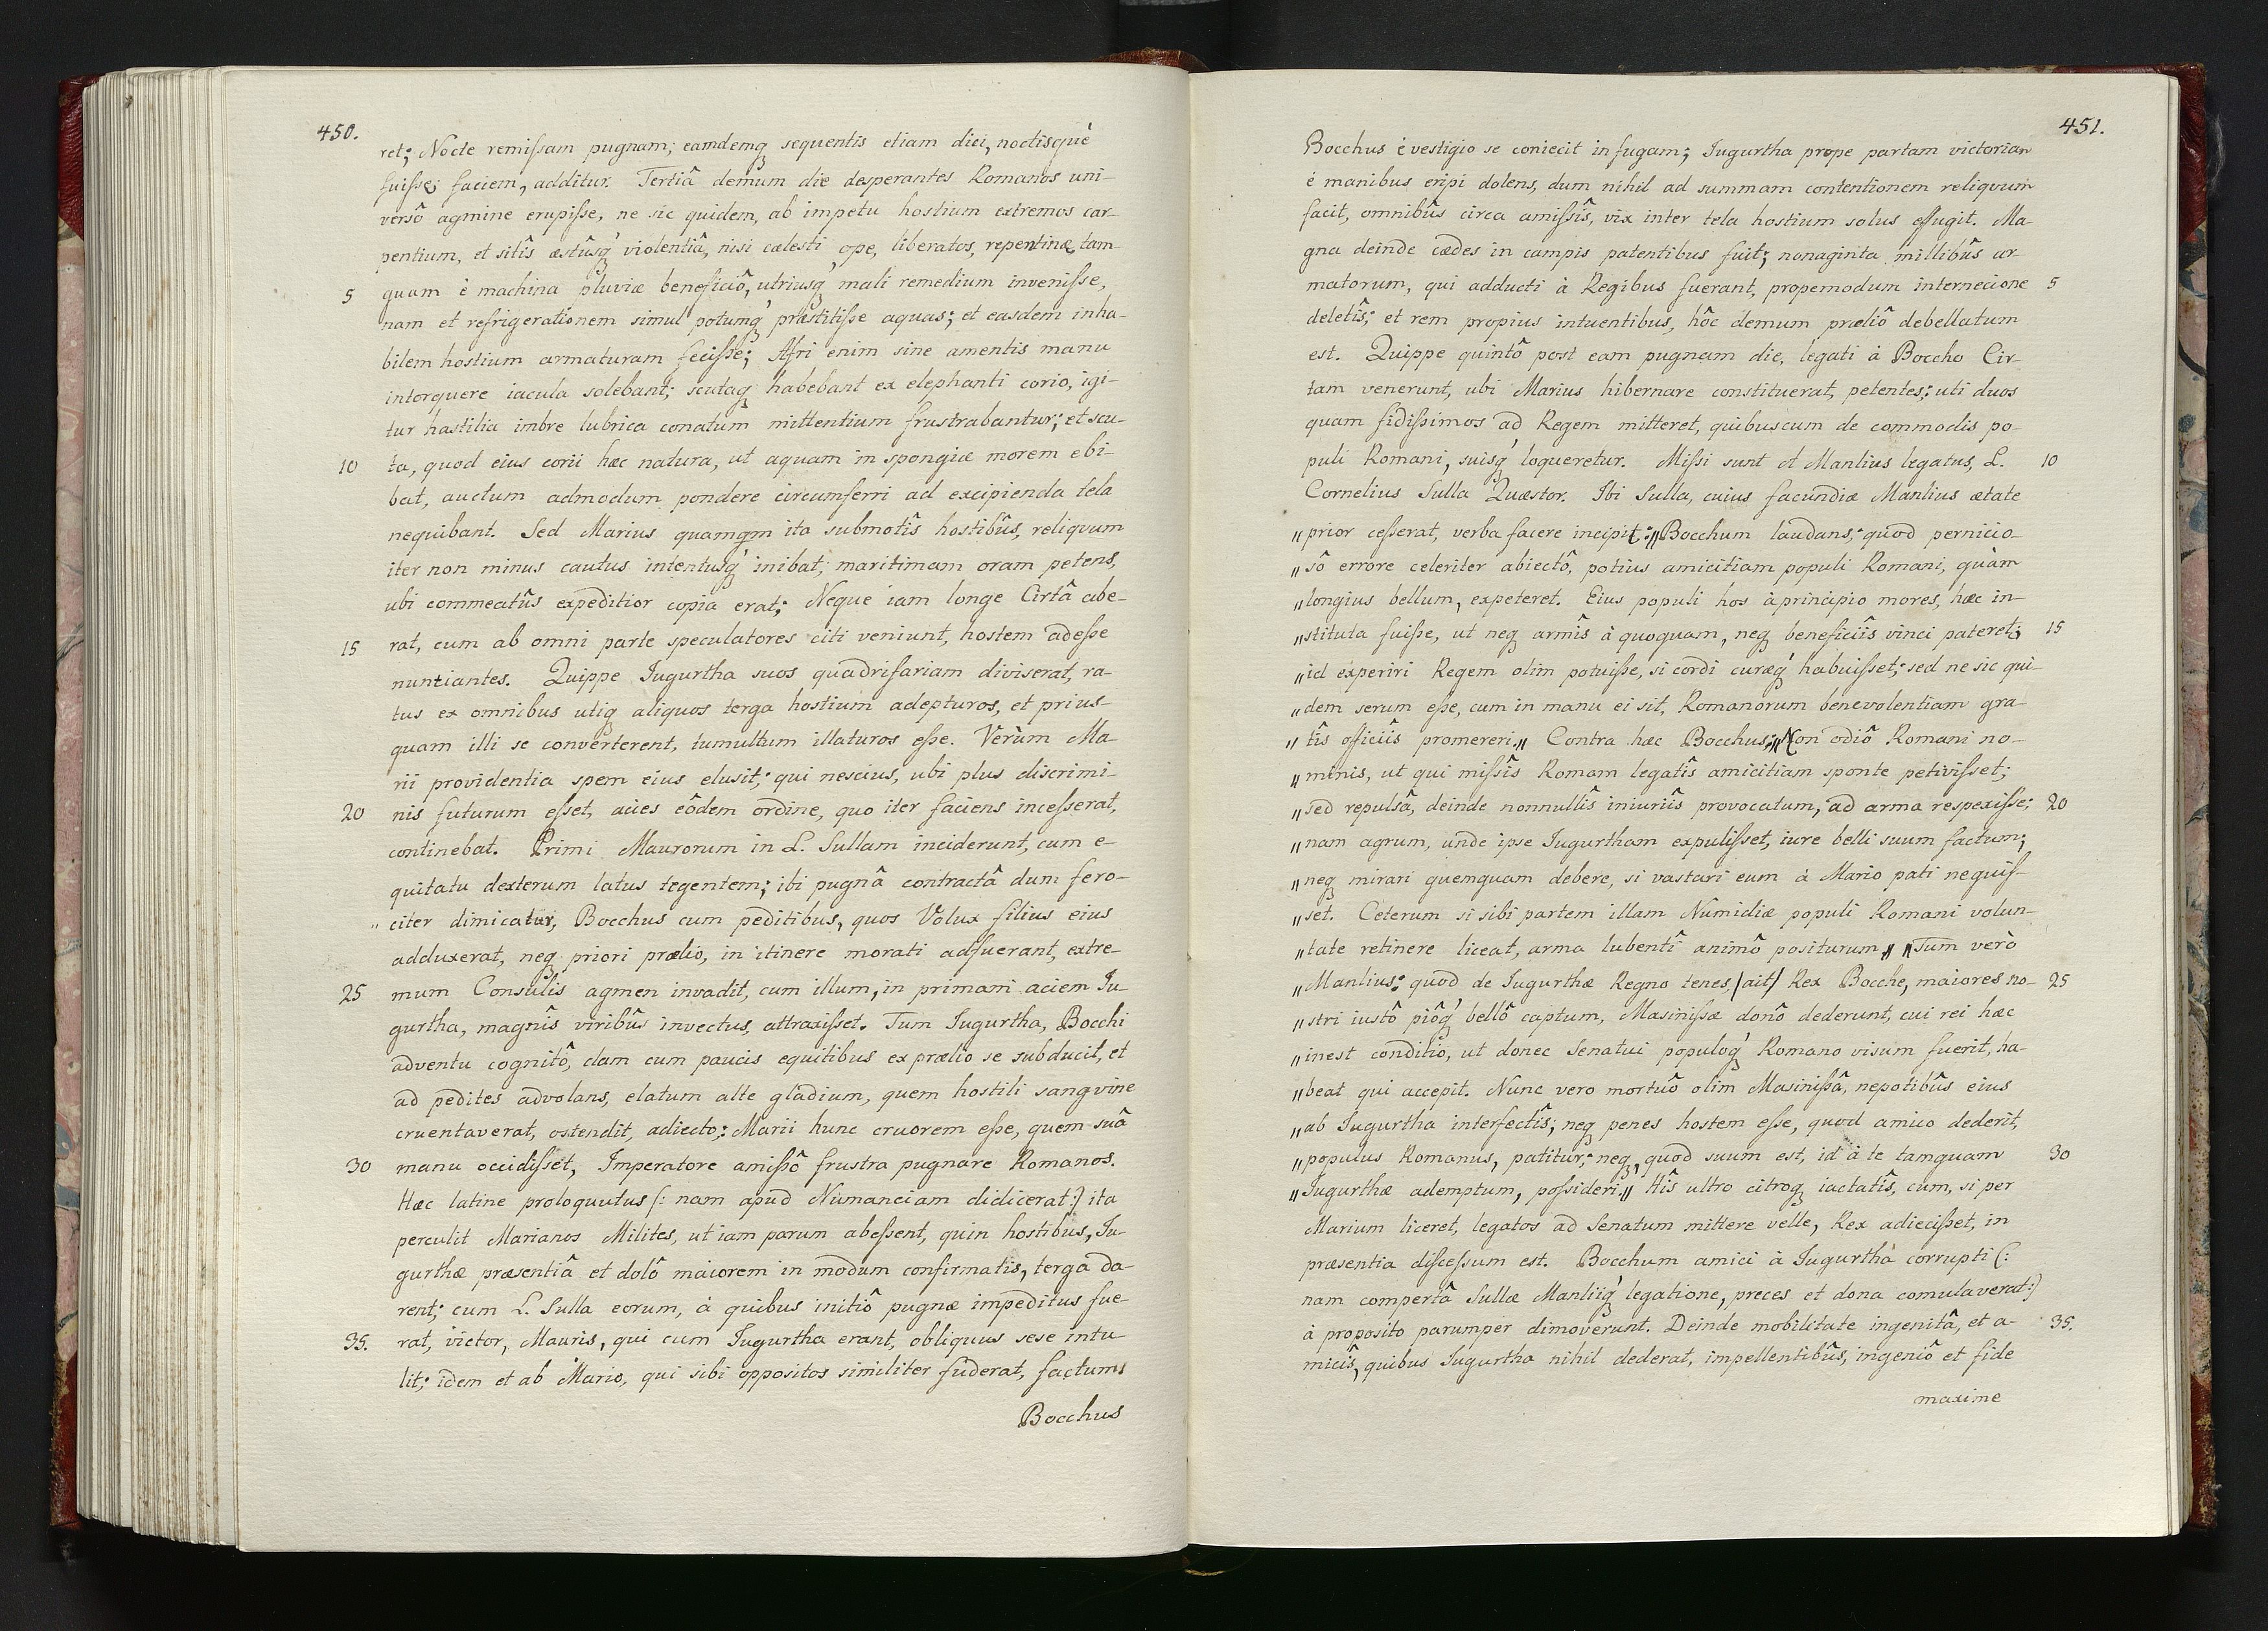 450.
ret; Nocte remissam pugnam; eamdemq sequentis etiam diei, noctisquè
fuisse; faciem, additur. Tertiâ demum die desperantes Romanos uni-
versô agmine erupisse, ne sic quidem, ab impetu hostium extremos car-
pentium, et sitîs æstûsq́ violentiâ, nisi cælesti ope, liberatos, repentinæ tam-
5 quam è machina pluviæ beneficiô, utriusq́ mali remedium invenisse,
nam et refrigerationem simul potumq́ præstitisse aquas; et easdem inha-
bilem hostium armaturam fecisse; Afri enim sine amentis manu
intorquere iacula solebant; scutaq habebant ex elephanti corio, igi-
tur hastilia imbre lubrica conatum mittentium frustrabantur; et scu-
10 ta, quod eius corii hæc natura, ut aquam in spongiæ morem ebi-
bat, auctum admodum pondere circumferri ad excipienda tela
nequibant. Sed Marius quamqm ita submotîs hostibûs, reliqvum
iter non minus cautus intentusq́ inibat; maritimam oram petens,
ubi commeatûs expeditior copia erat; Neque iam longe Cirtâ abe-
15 rat, cum ab omni parte speculatores citi veniunt, hostem adesse
nuntiantes. Quippe Iugurtha suos quadrifariam diviserat, ra-
tus ex omnibus utiq aliquos terga hostium adepturos, et prius-
quam illi se converterent, tumultum illaturos esse. Verùm Ma-
rii providentia spem eius elusit; qui nescius, ubi plus discrimi-
20 nis futurum esset, acies eôdem ordine, quo iter faciens incesserat,
continebat. Primi Maurorum in L. Sullam inciderunt, cum e-
quitatu dexterum latus tegentem; ibi pugnâ contractâ dum fero-
" citer dimicatur, Bocchus cum peditibus, quos Volux filius eius
adduxerat, neq priori prælio, in itinere morati adfuerant, extre-
25 mum Consulis agmen invadit, cum illum, in primam aciem Iu-
gurtha, magnîs viribûs invectus, attraxisset. Tum Iugurtha, Bocchi
adventu cognitô, clam cum paucis equitibus ex prælio se subducit, et
ad pedites advolans, elatum alte gladium, quem hostili sangvine
cruentaverat, ostendit, adiecto: Marii hunc cruorem esse, quem suâ
30 manu occidisset, Imperatore amissô frustra pugnare Romanos.
Hæc latine proloquutus (: nam apud Numanciam didicerat:) ita
perculit Marianos Milites, ut iam parum abessent, quin hostibus, Iu-
gurthæ præsentiâ et dolô maiorem in modum confirmatis, terga da-
rent; cum L. Sulla eorum, à quibus initiô pugnæ impeditus fue-
35. rat, victor, Mauris, qui cum Iugurtha erant, obliquus sese intu-
lit; idem et ab Mario, qui sibi oppositos similiter fuderat, factum
Bocchus
451.
Bocchus è vestigio se coniecit in fugam; Iugurtha prope partam victoriam
è manibus eripi dolens, dum nihil ad summam contentionem reliqvum
facit, omnibûs circa amissîs, vix inter tela hostium solus effugit. Ma-
gna deinde cædes in campis patentibus fuit; nonaginta millibûs ar-
matorum, qui adducti à Regibus fuerant, propemodum internecione 5
deletîs; et rem propius intuentibus, hôc demum præliô debellatum
est. Quippe quintô post eam pugnam die, legati à Boccho Cir-
tam venerunt, ubi Marius hibernare constituerat, petentes; uti duos
quam fidissimos ad Regem mitteret, quibuscum de commodis po-
puli Romani, suisq́ loqueretur. Missi sunt A Manlius legatus, L. 10
Cornelius Sulla Quæstor. Ibi Sulla, cuius facundiæ Manlius ætate
" prior cesserat, verba facere incipit: " Bocchum laudans; quod pernicio-
" sô errore celeriter abiectô, potius amicitiam populi Romani, quàm
" longius bellum, expeteret. Eius populi hos à principio mores, hæc in-
" stituta fuisse, ut neq armîs à quoquam, neq beneficiîs vinci pateret; 15
" id experiri Regem olim potuisse, si cordi curæq́ habuisset; sed ne sic qui-
" dem serum esse, cum in manu ei sit, Romanorum benevolentiam gra-
" tîs officiîs promereri." Contra hæc Bocchus: " Non odiô Romani no-
" minis, ut qui missîs Romam legatîs amicitiam sponte petivisset;
" sed repulsâ, deinde nonnullîs iniuriîs provocatum, ad arma respexisse; 20
" nam agrum, unde ipse Iugurtham expulisset, iure belli suum factum;
" neq mirari quemquam debere, si vastari eum à Mario pati nequis-
" set. Ceterum si sibi partem illam Numidiæ populi Romani volun-
" tate retinere liceat, arma lubentî animô positurum " " Tum verò
" Manlius: quod de Iugurthæ Regno tenes, /ait/ Rex Bocche, maiores no- 25
" stri iustô piôq́ bellô captum, Masinissæ donô dederunt, cui rei hæc
" inest conditio, ut donec Senatui populoq́ Romano visum fuerit, ha-
" beat qui accepit. Nunc vero mortuô olim Masinissâ, nepotibûs eius
" ab Iugurtha interfectîs; neq penes hostem esse, quod amico dederit,
" populus Romanus, patitur; neq, quod suum est, id à te tamquam 30
" Iugurthæ ademptum, possideri." Hîs ultro citroq iactatîs, cum, si per
Marium liceret, legatos ad Senatum mittere velle, Rex adiecisset, in
præsentia discessum est. Bocchum amici à Iugurtha corrupti (:
nam compertâ Sullæ Manliiq́ legatione, preces et dona comulaverat:)
à proposito parumper dimoverunt. Deinde mobilitate ingenitâ, et a- 35.
micîs, quibus Iugurtha nihil dederat, impellentibûs, ingeniô et fide
maxime